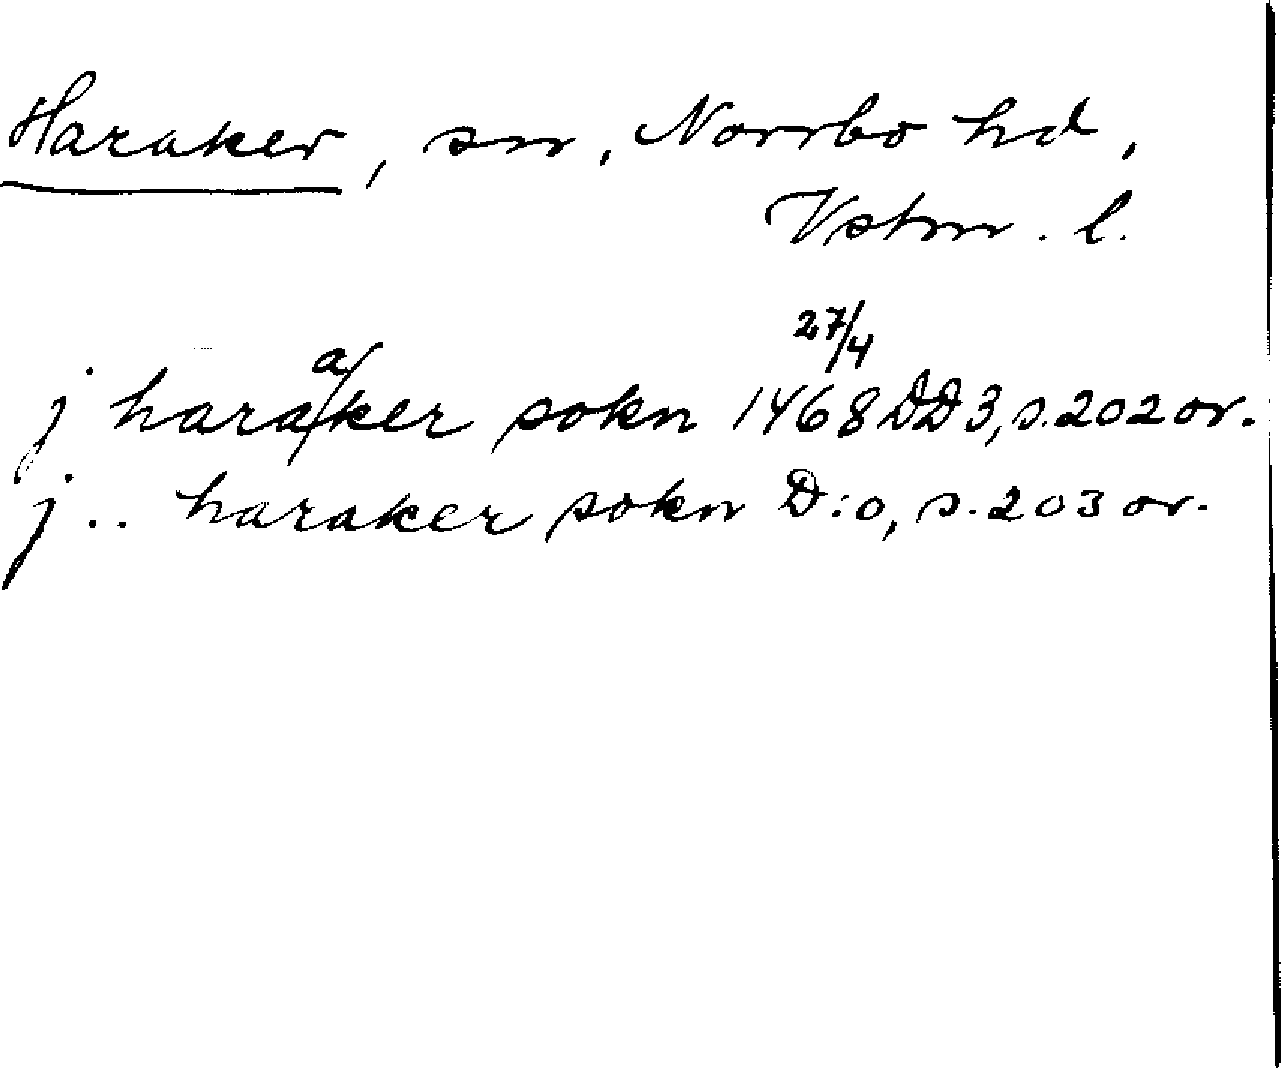 Haraker, sn, Norrbo hd,
Vstm. l.
j haraker sokn 1468 27/4 DD3, s. 202 or.
j .. haraker sokn D:o, s. 203 or.